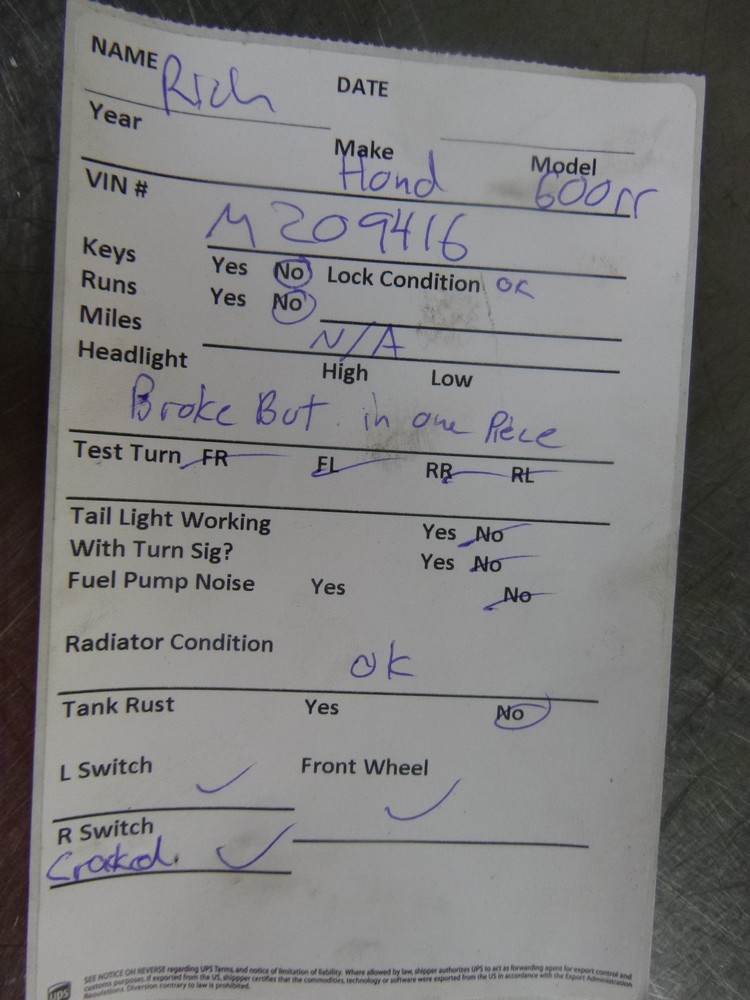 NAME Rich DATE
Year Make Hond Model 600rr
VIN # M209416
Keys Yes No Lock Condition OK
Runs Yes No
Miles N/A
Headlight High Low
Broke But in one Piece
Test Turn FR FL RR RL
Tail Light Working Yes No
With Turn Sig? Yes No
Fuel Pump Noise Yes No
Radiator Condition
ok
Tank Rust Yes No
L Switch ✓ Front Wheel ✓
R Switch
Cracked. ✓
ups
SEE NOTICE ON REVERSE regarding UPS Terms, and notice of limitation of liability. Where allowed by law, shipper authorizes UPS to act as forwarding agent for export control and
customs purposes. If exported from the US, shipper certifies that the commodities, technology or software were exported from the US in accordance with the Export Administration
Regulations. Diversion contrary to law is prohibited.